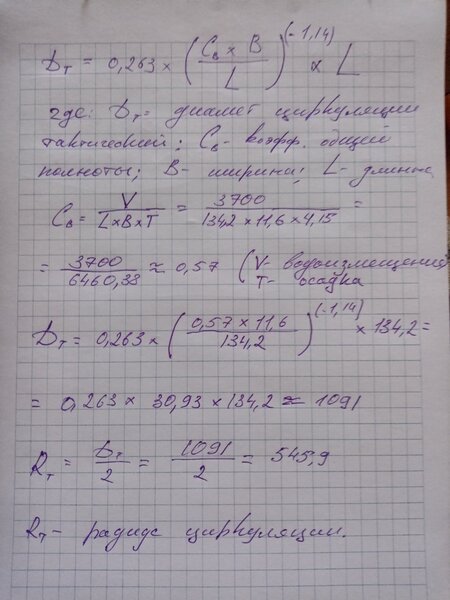 Dт = 0,263 × (Cв × B / L)^(-1,14) × L
где: Dт = диамет циркуляции
тактической; Cв - коэфф. общей
полноты; B - ширина; L - длинна
Cв = V / L×B×T = 3700 / 134,2 × 11,6 × 4,15 =
= 3700 / 6460,38 ≈ 0,57 (V - водоизмещение
T - осадка
Dт = 0,263 × (0,57 × 11,6 / 134,2)^(-1,14) × 134,2 =
= 0,263 × 30,93 × 134,2 ≈ 1091
Rт = Dт / 2 = 1091 / 2 = 545,9
Rт - радиус циркуляции.